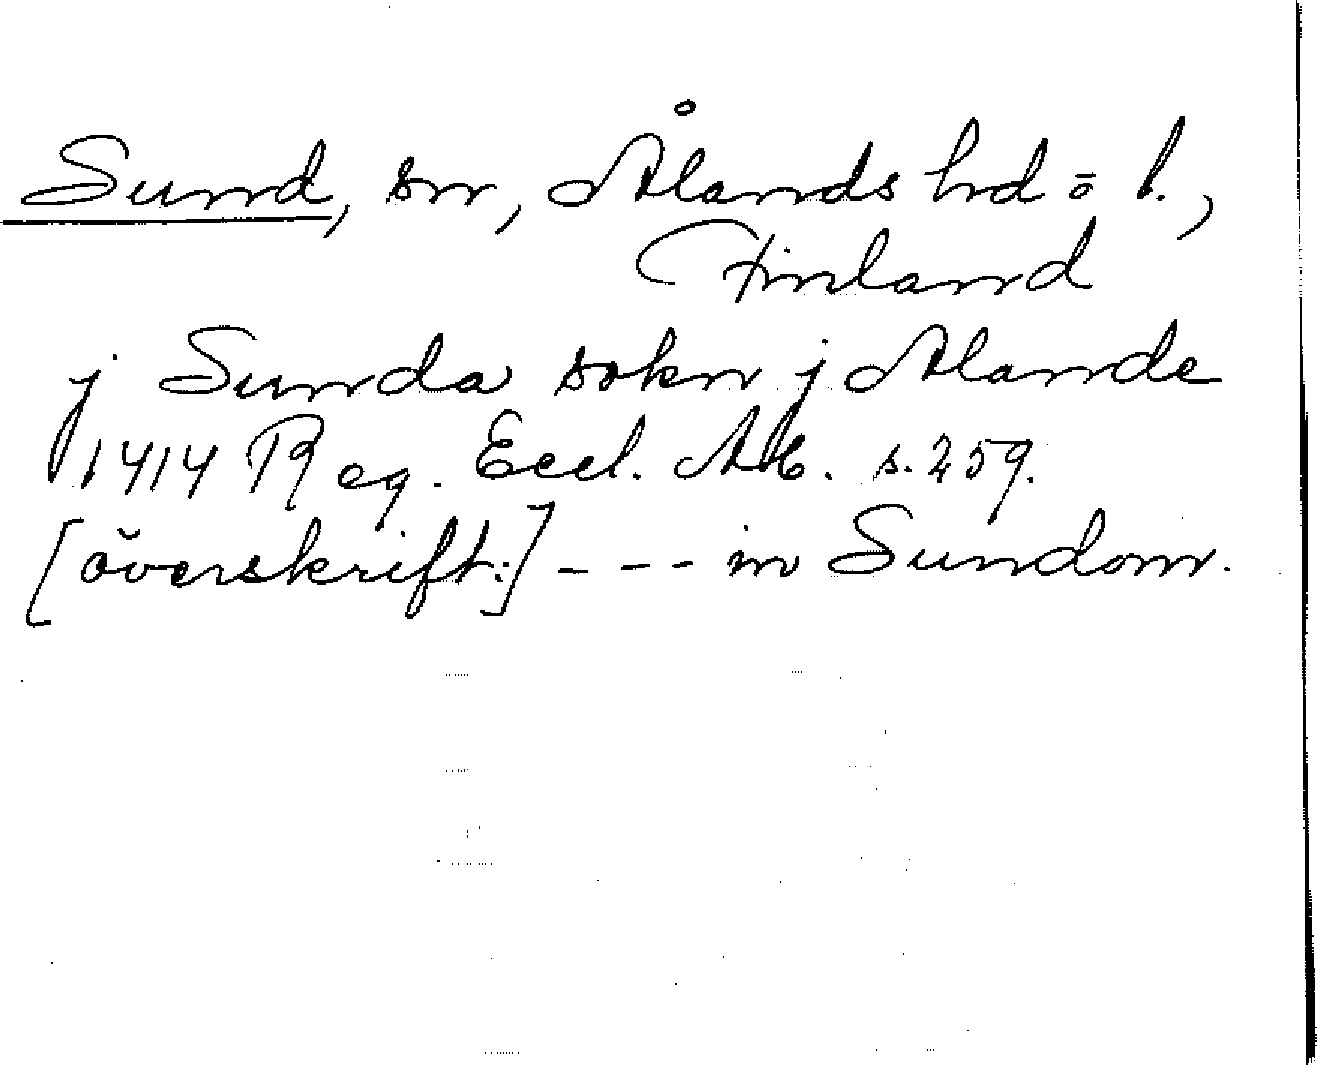 Sund, sn, Ålands hd o l.,
Finland
j Sunda sokn j Alande
1414 Reg. Eccl. Ab. s. 259.
[överskrift:] - - - in Sundom.